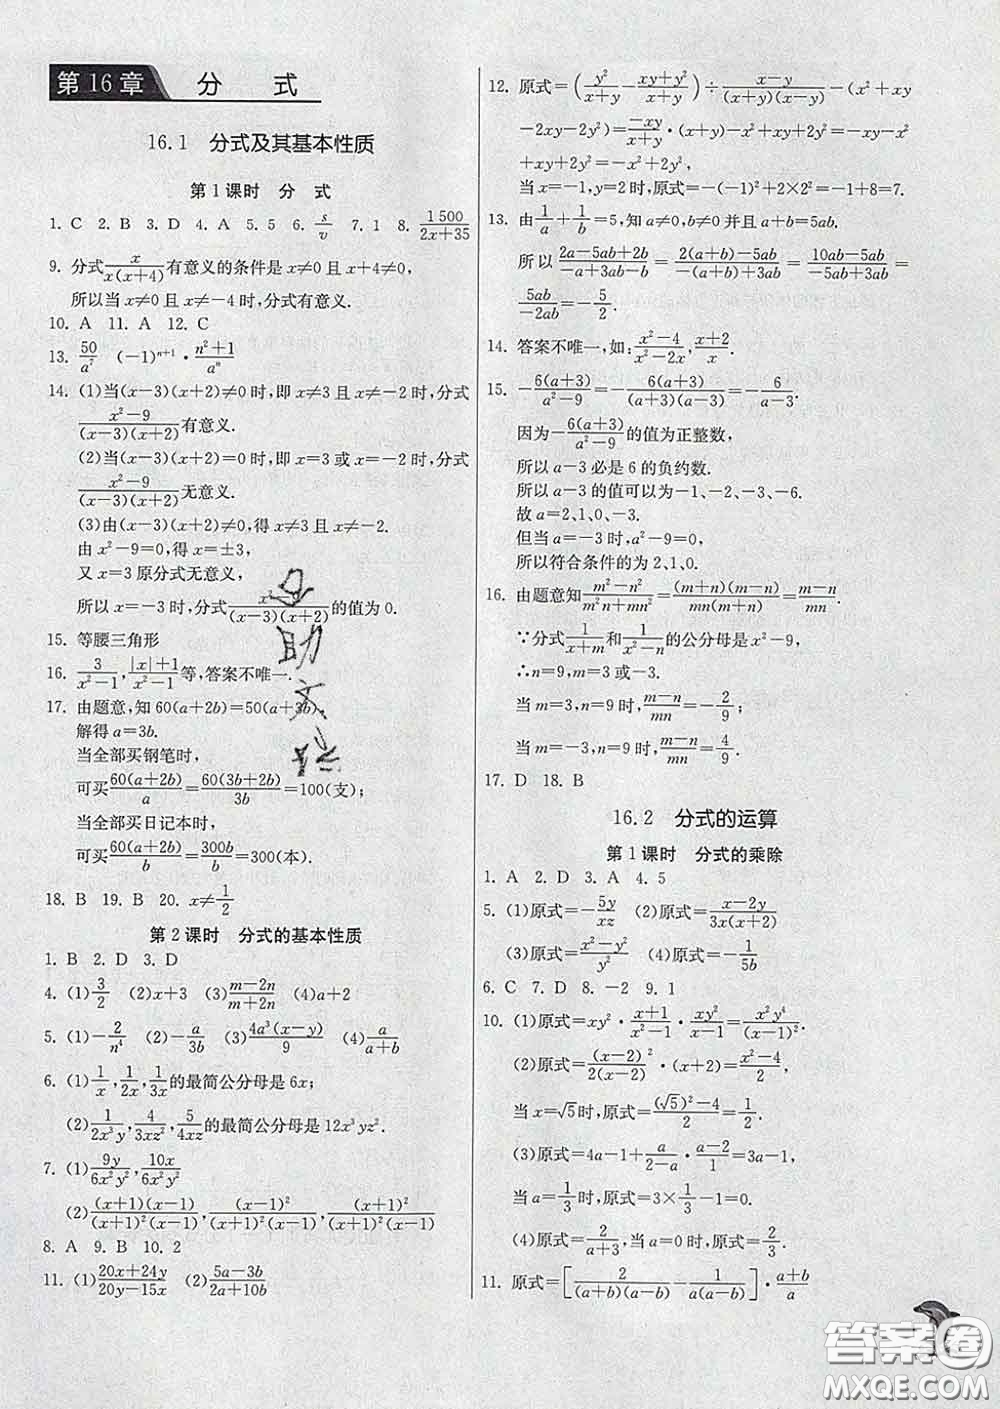 第16章 分 式
16.1 分式及其基本性质
第1课时 分 式
1. C 2. B 3. D 4. A 5. 5 6. s/v 7. 1 8. 1500/(2x+35)
9. 分式x/(x(x+4))有意义的条件是x≠0且x+4≠0,
所以当x≠0且x≠-4时,分式有意义.
10. A 11. A 12. C
13. 50/a⁷ (-1)ⁿ⁺¹·(n²+1)/aⁿ
14. (1)当(x-3)(x+2)≠0时,即x≠3且x≠-2时,分式
(x²-9)/((x-3)(x+2))有意义.
(2)当(x-3)(x+2)=0时,即x=3或x=-2时,分式
(x²-9)/((x-3)(x+2))无意义.
(3)由(x-3)(x+2)≠0,得x≠3且x≠-2.
由x²-9=0,得x=±3,
又x=3原分式无意义,
所以x=-3时,分式(x²-9)/((x-3)(x+2))的值为0.
15. 等腰三角形
16. 3/(x²-1),(|x|+1)/(x²-1)等,答案不唯一.
17. 由题意,知60(a+2b)=50(a+3b).
解得a=3b.
当全部买钢笔时,
可买60(a+2b)/a=60(3b+2b)/3b=100(支);
当全部买日记本时,
可买60(a+2b)/b=300b/b=300(本).
18. B 19. B 20. x≠1/2
第2课时 分式的基本性质
1. B 2. D 3. D
4. (1)3/2 (2)x+3 (3)(m-2n)/(m+2n) (4)a+2
5. (1)-2/n⁴ (2)-a/3b (3)4a³(x-y)/9 (4)a/(a+b)
6. (1)1/x,1/2x,1/3x的最简公分母是6x;
(2)1/(2x³y),4/(3xz²),5/(4xz)的最简公分母是12x³yz².
7. (1)9y/(6x²y²),10x/(6x²y²)
(2)(x+1)(x-1)/((x+1)²(x-1)),(x-1)²/((x+1)²(x-1)),(x+1)²/((x+1)²(x-1))
8. A 9. B 10. 2
11. (1)(20x+24y)/(20y-15x) (2)(5a-3b)/(2a+10b)
12. 原式=(y²/(x+y)-(xy+y²)/(x+y))÷(x-y)/((x+y)(x-y))-(x²+xy
-2xy-2y²)=-xy/(x+y)·(x+y)-x²+xy+2y²=-xy-x²
+xy+2y²=-x²+2y².
当x=-1,y=2时,原式=-(-1)²+2×2²=-1+8=7.
13. 由1/a+1/b=5,知a≠0,b≠0并且a+b=5ab.
所以(2a-5ab+2b)/(-a+3ab-b)=(2(a+b)-5ab)/(-(a+b)+3ab)=(10ab-5ab)/(-5ab+3ab)=
5ab/(-2ab)=-5/2.
14. 答案不唯一,如:(x²-4)/(x²-2x),(x+2)/x.
15. -6(a+3)/(a²-9)=-6(a+3)/((a+3)(a-3))=-6/(a-3).
因为-6(a+3)/(a²-9)的值为正整数,
所以a-3必是6的负约数.
所以a-3的值可以为-1、-2、-3、-6.
故a=2、1、0、-3.
但当a=-3时,a²-9=0,
所以符合条件的为2、1、0.
16. 由题意知(m²-n²)/(m²n+mn²)=(m+n)(m-n)/(mn(m+n))=(m-n)/mn.
∵分式1/(x+m)和1/(x²-n)的公分母是x²-9,
∴n=9,m=3或-3.
当m=3,n=9时,(m-n)/mn=-2/9;
当m=-3,n=9时,(m-n)/mn=4/9.
17. D 18. B
16.2 分式的运算
第1课时 分式的乘除
1. A 2. D 3. A 4. 5
5. (1)原式=-5y/xz (2)原式=(x-2y)/(3x(x+2))
(3)原式=(x²-y²)/y² (4)原式=-1/5b
6. C 7. D 8. -2 9. 1
10. (1)原式=xy²·(x+1)/(x²-1)·xy²/(x-1)=x²y⁴/(x-1)².
(2)原式=(x-2)²/(2(x-2))·(x+2)=(x²-4)/2.
当x=√5时,原式=((√5)²-4)/2=1/2.
(3)原式=4a-1+a/(2-a)·(a-2)/1=3a-1,
当a=1/3时,原式=3×1/3-1=0.
(4)原式=2/(a+3),当a=0时,原式=2/3.
11. 原式=[2/((a+b)(a-b))-1/(a(a-b))]·(a+b)/a
答案卷
MXQE.COM